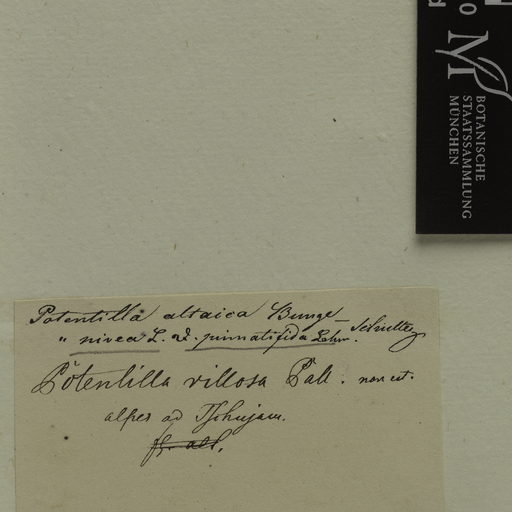 M
BOTANISCHE
STAATSSAMMLUNG
MÜNCHEN
Potentilla altaica Bunge
" nivea L. pinnatifida Lehm.
Potentilla villosa Pall. non est.
alpes ad Tschujam.